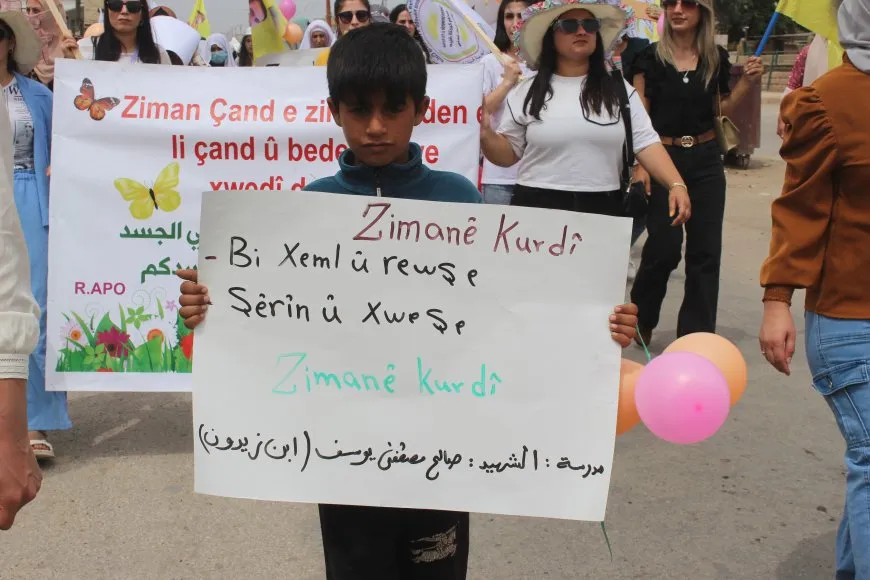 Ziman Çand e
li çand û
xwedî
ي الجسد
R.APO
Zimanê Kurdî
- Bi Xeml û rewşe
Şêrîn û xweşe
Zimanê kurdî
مدرسة : الشهيد : صالح مصطفى يوسف (ابن زيدون)